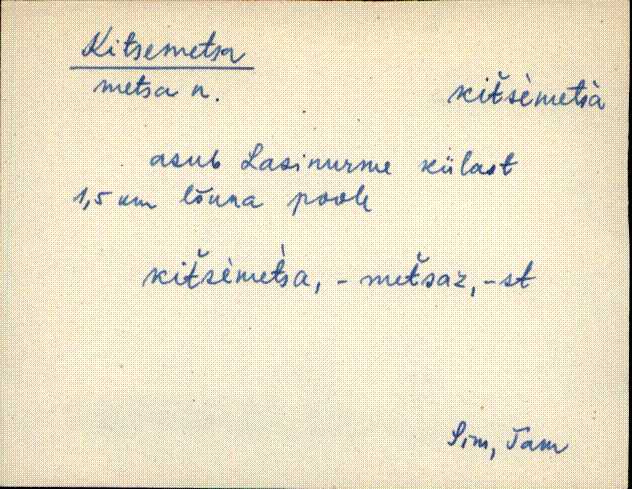 Kitsemetsa
metsa n. kit̆sèmetsà
asub Lasinurme külast
1,5 km lõuna poole
kit̆sèmet̀sa, - met̆saz, -st
Sim, Tam